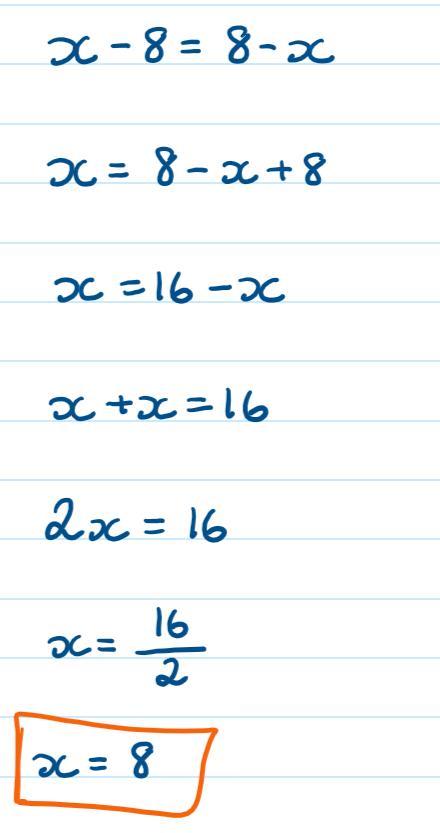 x - 8 = 8 - x
x = 8 - x + 8
x = 16 - x
x + x = 16
2x = 16
x = 16/2
x = 8